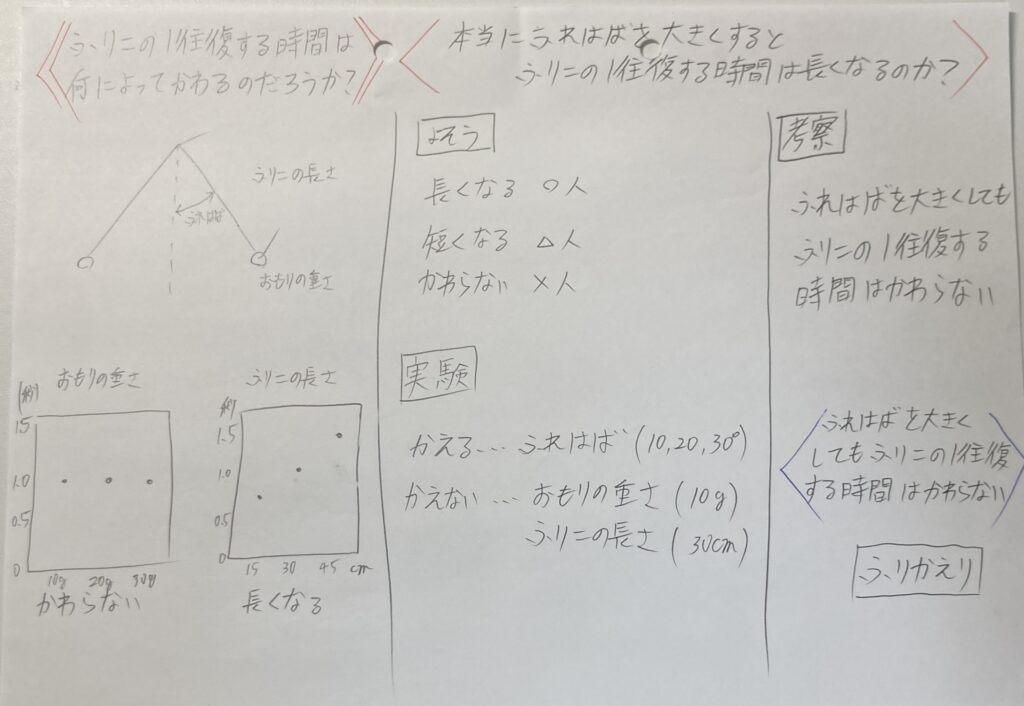 ふりこの1往復する時間は
何によってかわるのだろうか?
本当にふれはばを大きくすると
ふりこの1往復する時間は長くなるのか?
ふりこの長さ
ふれはば
おもりの重さ
おもりの重さ
(秒)
1.5
1.0
0.5
0
10g 20g 30g
かわらない
ふりこの長さ
秒
1.5
1.0
0.5
0
15 30 45 cm
長くなる
よそう
長くなる ○人
短くなる △人
かわらない ×人
実験
かえる… ふれはば (10,20,30°)
かえない … おもりの重さ (10g)
ふりこの長さ (30cm)
考察
ふれはばを大きくしても
ふりこの1往復する
時間はかわらない
ふれはばを大きく
してもふりこの1往復
する時間はかわらない
ふりかえり